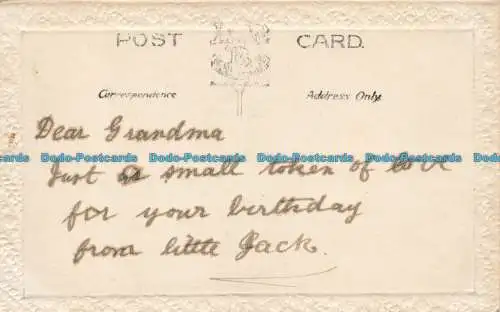 POST CARD.
Correspondence Address Only.
Dear Grandma
Dodo-Postcards Dodo-Postcards Dodo-Postcards Dodo-Postcards
Just a small token of love
for your birthday
Dodo-Postcards Dodo-Postcards Dodo-Postcards Dodo-Postcards
from little Jack.